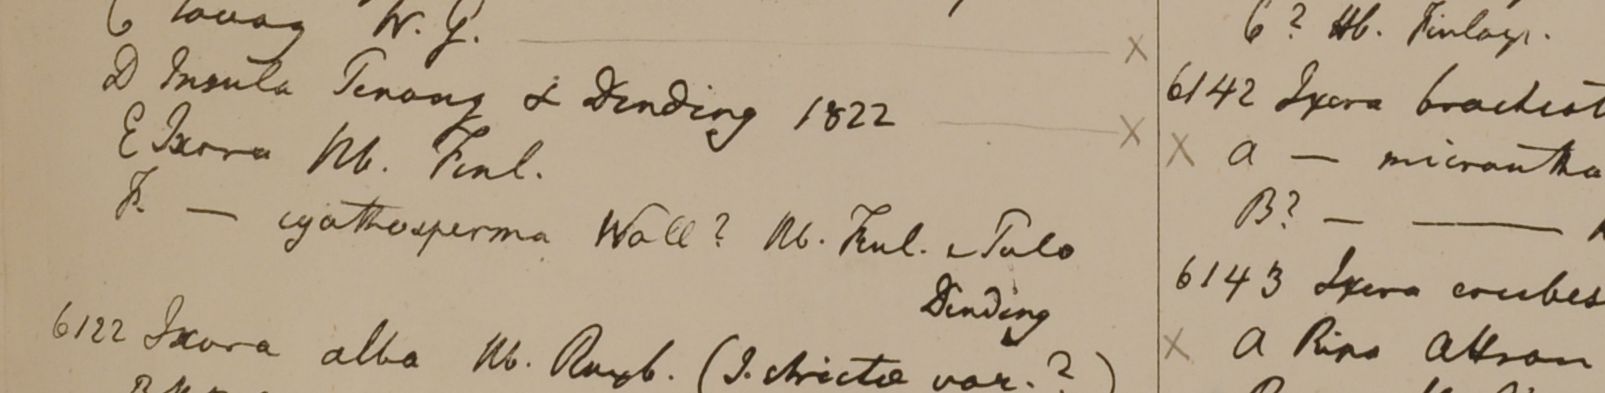 C Tavoy W. G.
D Insula Penang & Dinding 1822
E Ixora Hb. Finl.
F. — cyathosperma Wall? Hb. Finl. e Pulo
Dinding
6122 Ixora alba Hb. Roxb. (I. stricta var. ?)
C? Hb. Finlays.
6142 Ixora brachiat
a — micrantha
B? — —
6143 Ixora erubes
a Ripa Attran